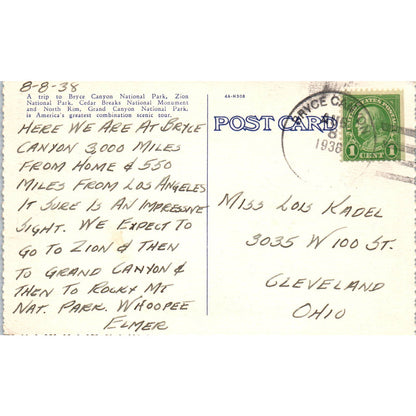 8-8-38
A trip to Bryce Canyon National Park, Zion
National Park, Cedar Breaks National Monument
and North Rim, Grand Canyon National Park,
is America's greatest combination scenic tour.
4A-H308
HERE WE ARE AT BRYCE
CANYON 3,000 MILES
FROM HOME & 550
MILES FROM LOS ANGELES
IT SURE IS AN IMPRESSIVE
SIGHT. WE EXPECT TO
GO TO ZION & THEN
TO GRAND CANYON &
THEN TO ROCKY MT
NAT. PARK. WHOOPEE
ELMER
POST CARD
BRYCE CANYON
AUG
8
1938
UNITED STATES POSTAGE
1 CENT 1
MISS LOIS KADEL
3035 W 100 ST.
CLEVELAND
OHIO